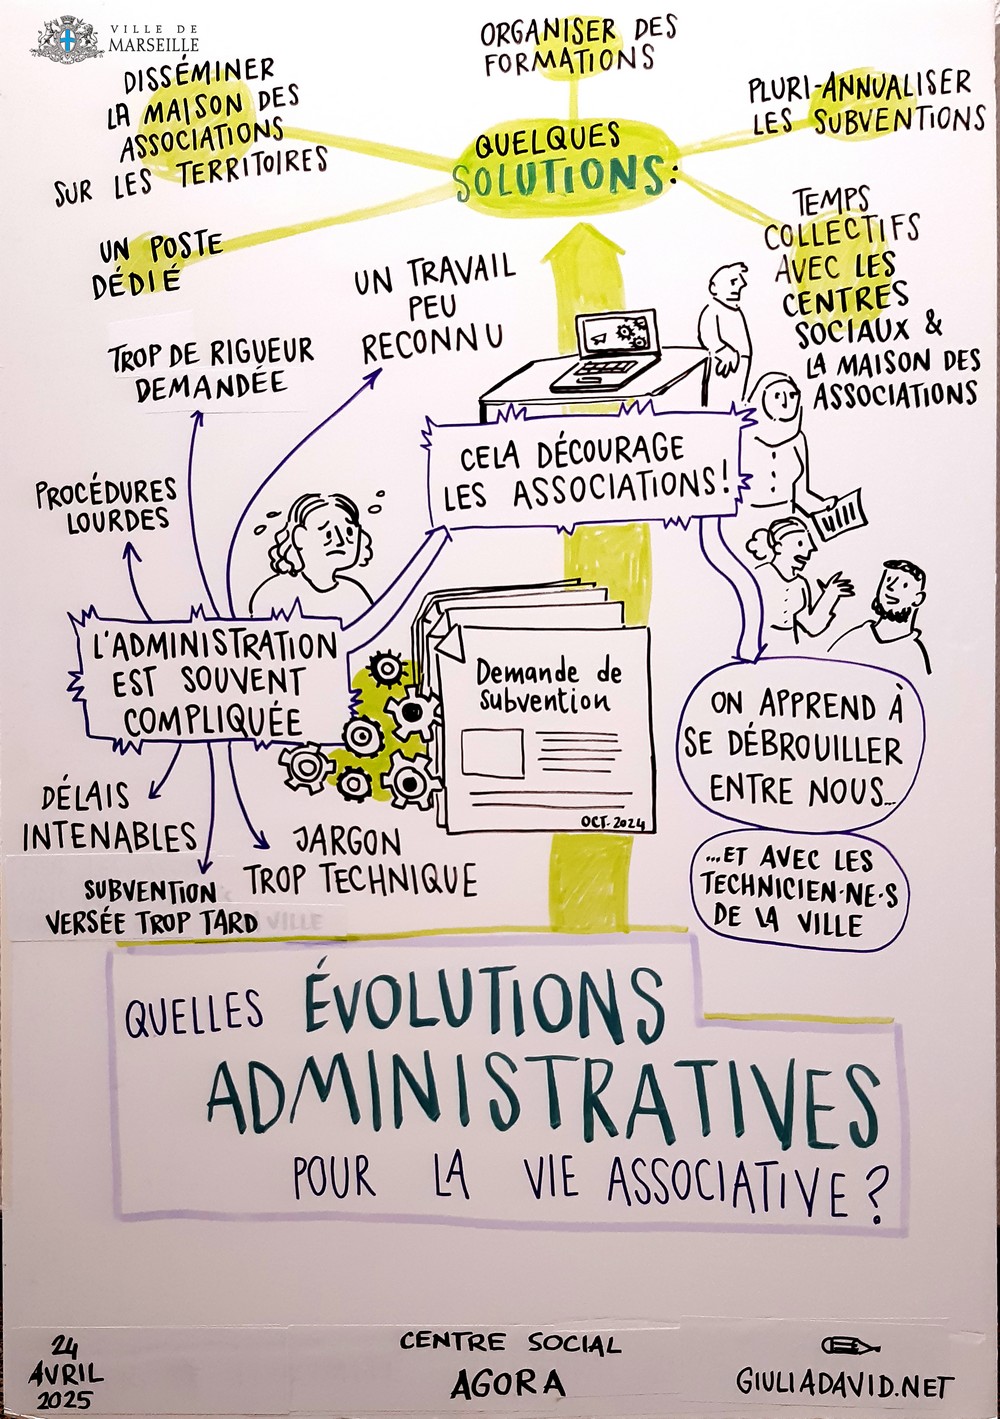 VILLE DE
MARSEILLE
DISSÉMINER
LA MAISON DES
ASSOCIATIONS
SUR LES TERRITOIRES
ORGANISER DES
FORMATIONS
PLURI-ANNUALISER
LES SUBVENTIONS
QUELQUES
SOLUTIONS:
UN POSTE
DÉDIÉ
TEMPS
COLLECTIFS
AVEC LES
CENTRES
SOCIAUX &
LA MAISON DES
ASSOCIATIONS
UN TRAVAIL
PEU
RECONNU
TROP DE RIGUEUR
DEMANDÉE
PROCÉDURES
LOURDES
CELA DÉCOURAGE
LES ASSOCIATIONS!
L'ADMINISTRATION
EST SOUVENT
COMPLIQUÉE
Demande de
subvention
OCT. 2024
ON APPREND À
SE DÉBROUILLER
ENTRE NOUS...
...ET AVEC LES
TECHNICIEN·NE·S
DE LA VILLE
DÉLAIS
INTENABLES
JARGON
TROP TECHNIQUE
SUBVENTION
VERSÉE TROP TARD
VILLE
QUELLES ÉVOLUTIONS
ADMINISTRATIVES
POUR LA VIE ASSOCIATIVE?
24
AVRIL
2025
CENTRE SOCIAL
AGORA
GIULIADAVID.NET